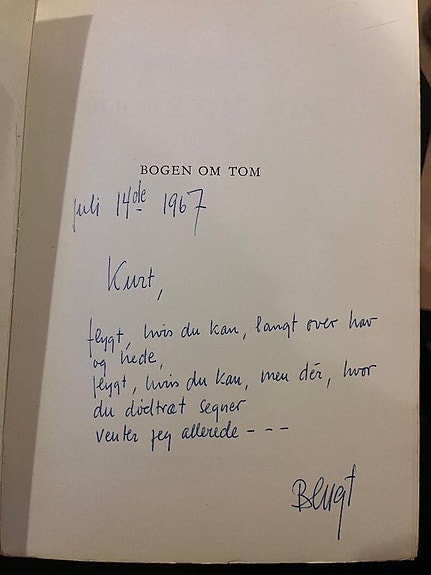 BOGEN OM TOM
juli 14de 1967
Kurt,
flygt, hvis du kan, langt over hav
og hede,
flygt, hvis du kan, men dér, hvor
du dødtræt segner
venter jeg allerede - - -
Bengt